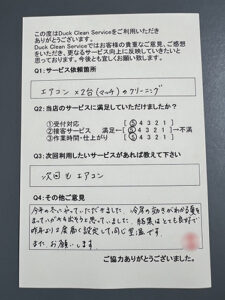 この度はDuck Clean Serviceをご利用いただき
ありがとうございます。
Duck Clean Serviceではお客様の貴重なご意見、ご感想
をいただき、更なるサービス向上に反映していきたいと
思っております。今後とも宜しくお願い致します。
Q1:サービス依頼箇所
エアコン×2台(マッチ)のクリーニング
Q2:当店のサービスに満足していただけましたか?
①受付対応 5 4 3 2 1
②接客サービス 満足← 5 4 3 2 1 →不満
③作業時間・仕上がり 5 4 3 2 1
Q3:次回利用したいサービスがあれば教えて下さい
次回もエアコン
Q4:その他ご意見
今年の冬にやっていただきました。今年の効きがわかる夏を
まっていたからと思っていました。結果はとても良好で
昨年より2度高く設定して同じ室温です。
また、お願いします
ご協力ありがとうございました。